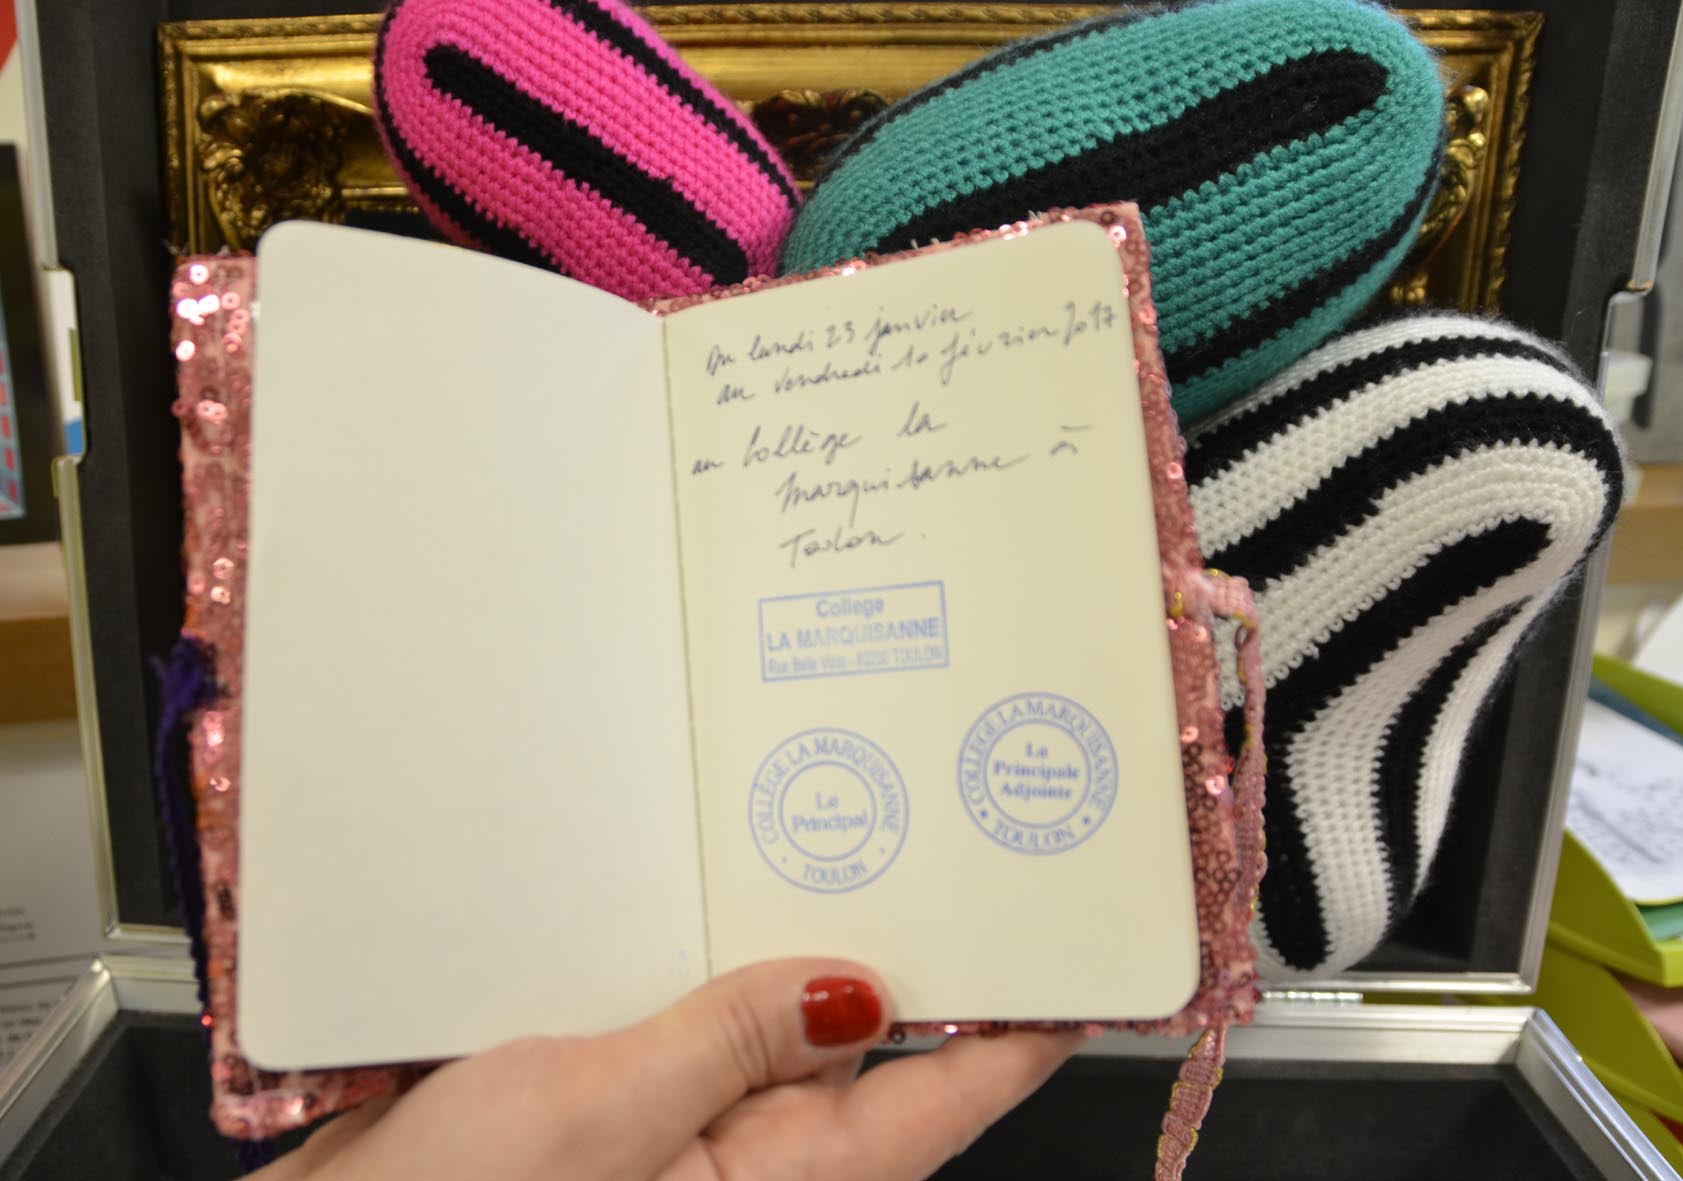 Du lundi 23 janvier
au vendredi 10 février 2017
au Collège la
Marquisanne à
Toulon.
College
LA MARQUISANNE
Rue Belle Visto - 83200 TOULON
COLLÈGE LA MARQUISANNE
Le
Principal
TOULON
COLLEGE LA MARQUISANNE
La
Principale
Adjointe
TOULON